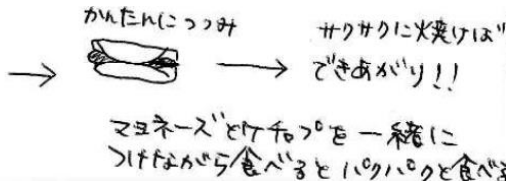 かんたんにつつみ
サクサクに焼けば
できあがり!!
マヨネーズとケチャップを一緒に
つけながら食べるとパクパクと食べる